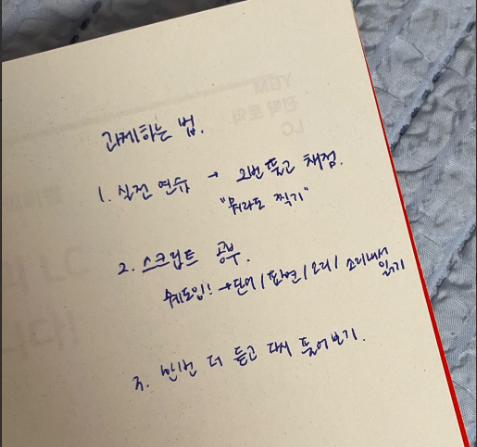 과제하는 법.
1. 실전 연습 → 2번 듣고 채점.
"뭐라도 찍기"
2. 스크립트 공부.
쉐도잉!! → 단어 / 표현 / 오타 / 소리내서 읽기
3. 한번 더 듣고 다시 풀어보기.
YBM
전략 토익
LC